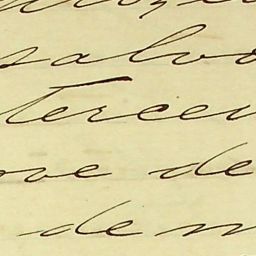 salvo
Tercei
ove de
de m